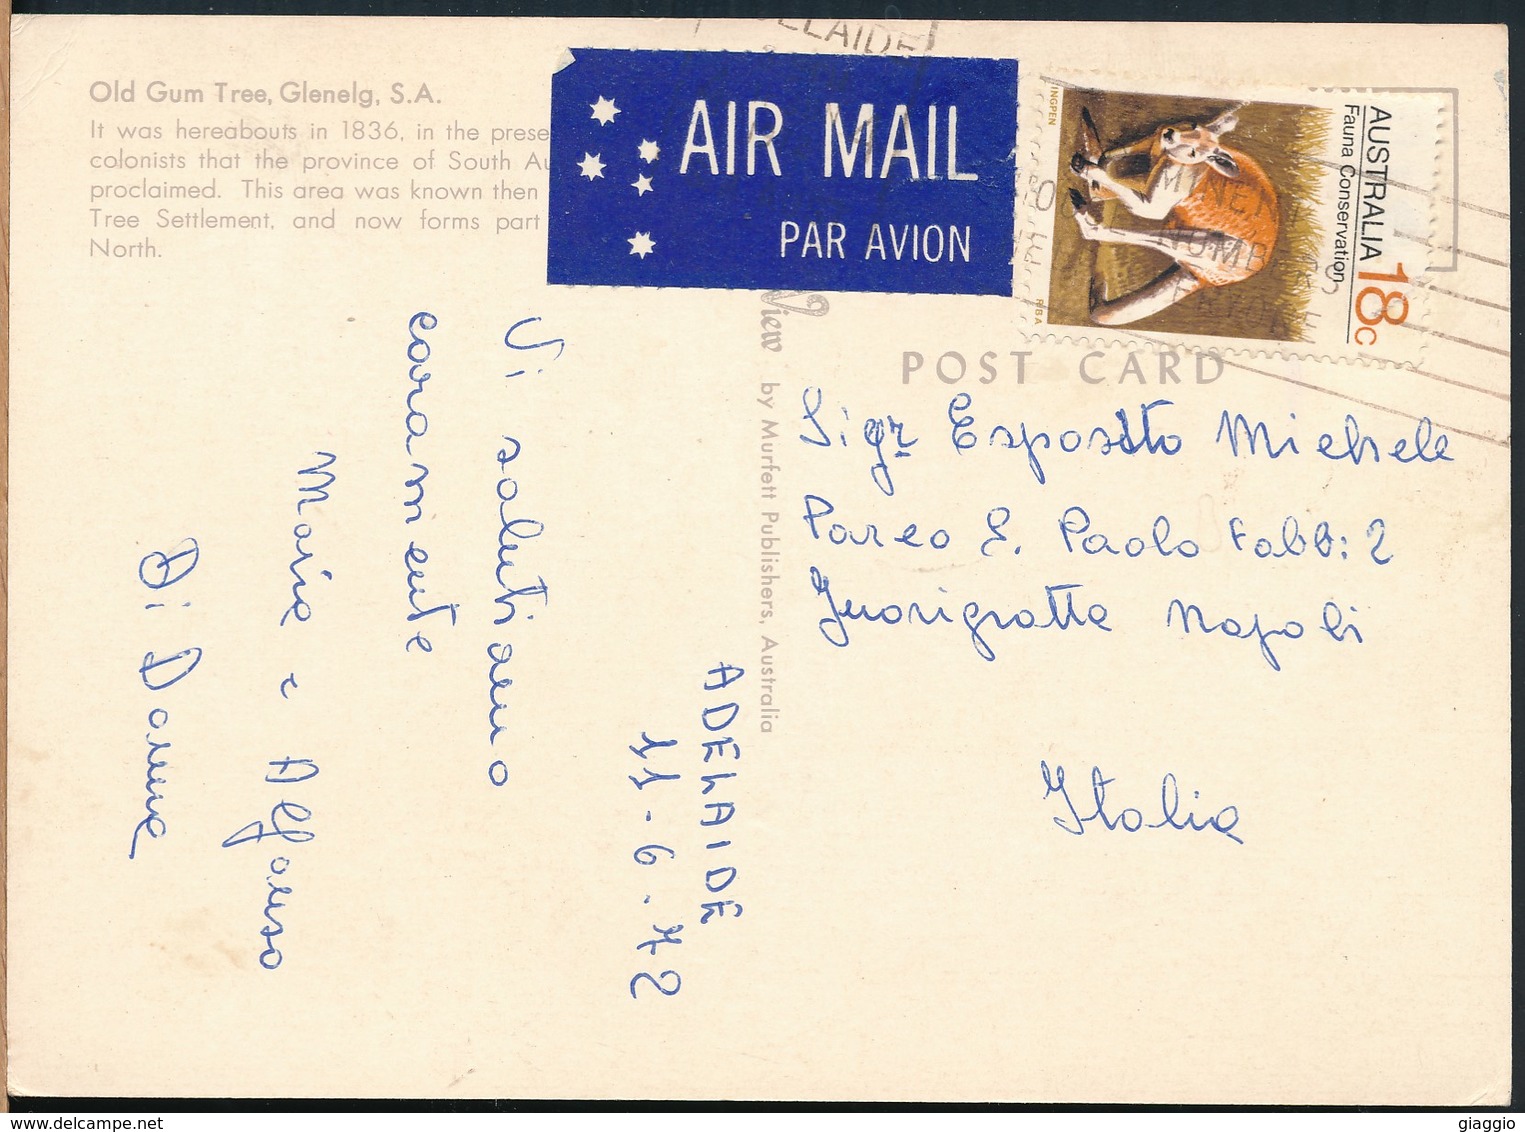 Old Gum Tree, Glenelg, S.A.
It was hereabouts in 1836, in the prese
colonists that the province of South Au
proclaimed. This area was known then
Tree Settlement, and now forms part
North.
AIR MAIL
PAR AVION
ADELAIDE
AUSTRALIA 18c
Fauna Conservation
INGPEN
RBA
POST CARD
View by Murfett Publishers, Australia
ADELAIDE
11-6.72
Vi salutiamo
caramente
Maria e Alfonso
Di Donna
Sigr Esposito Michele
Parco S. Paolo Fabb: 2
Fuorigrotta Napoli
Italia
delcampe.net
giaggio